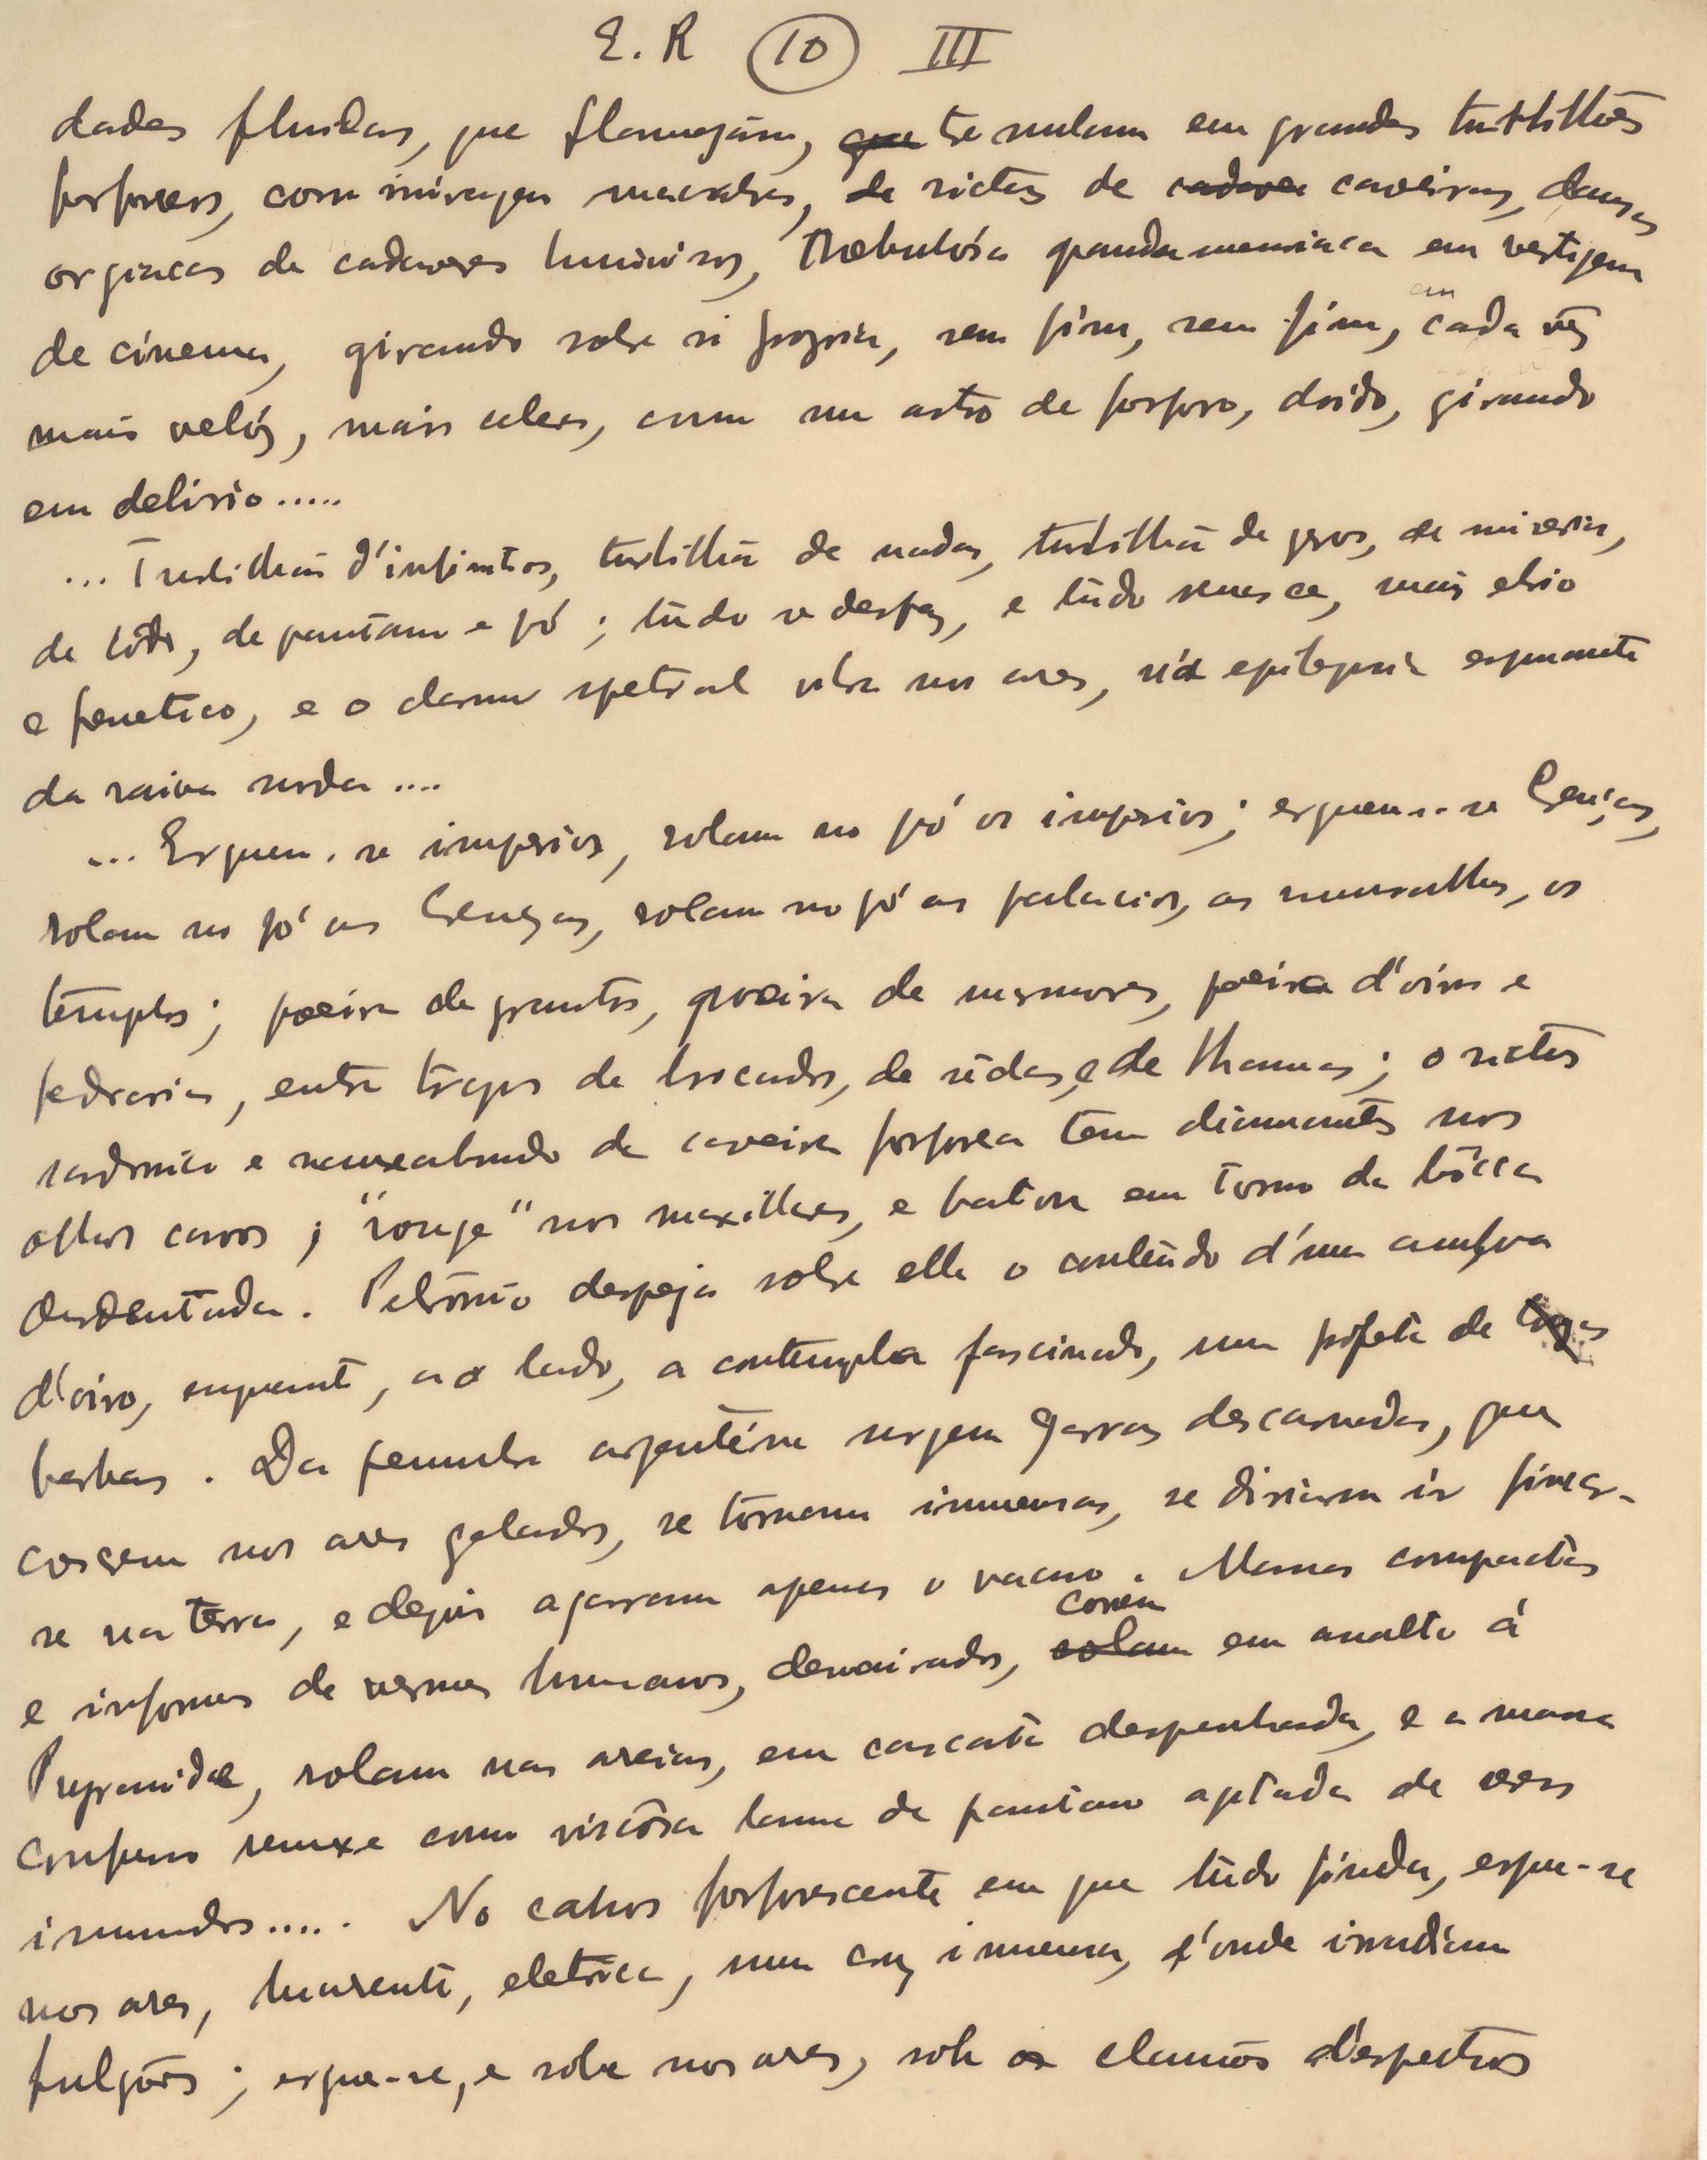 E. R (10) III
dades fluidas, que flamejam, que se enlaçam em grandes turbilhões
forforeos, com miragens macabras, de rictus de cadaver caveiras, danças
orgiacas de cadaveres luminosos, Nebulósa pandemoniaca em vertigem
de cinema, girando sobre si propria, sem fim, sem fim, em cada vez
mais velóz, mais celere, como um astro de forforo, doido, girando
em delirio.....
... Turbilhão d'infinitos, turbilhão de nadas, turbilhão de gosos, de miseria,
de lôdo, de pantano e pó; tudo se desfaz, e tudo renasce, mais ebrio
e frenetico, e o clamor spetral sobe nos ares, epilepsia espumante
da raiva surda....
... Erguem-se imperios, rolam no pó os imperios; erguem-se Crenças,
rolam no pó as Crenças, rolam no pó os palacios, as muralhas, os
templos; poeira de granitos, poeira de marmores, poeira d'oiro e
pedrarias, entre trapos de brocados, de sêdas, e de lhamas; o rictus
sardonico e nauseabundo da caveira forforea tem diamantes nos
olhos cavos; "rouge" nos maxillares, e baton em torno da bôcca
desdentada. Petrónio despeja sobre ella o conteúdo d'um amfora
d'oiro, enquanto, ao lado, a contempla fascinado, um profeta de longas
barbas. Da penumbra argentéria surgem garras descarnadas, que
crescem nos ares gelados, se tornam immensas, se diriam ir fincar-
se na terra, e depois agarram apenas o vacuo. Massas compactas
e informes de vermes humanos, desvairados, rolam correm em assalto á
Pyramide, rolam nas areias, em cascata despenhada, e a massa
confusa remexe como viscósa lama de pantano agitada de vermes
immundos..... No cahos forforescente em que tudo finda, ergue-se
nos ares, luarenta, eletrica, uma cruz immensa, d'onde irradiam
fulgôres; ergue-se, e sobe nos ares, sob os clamores d'espectros